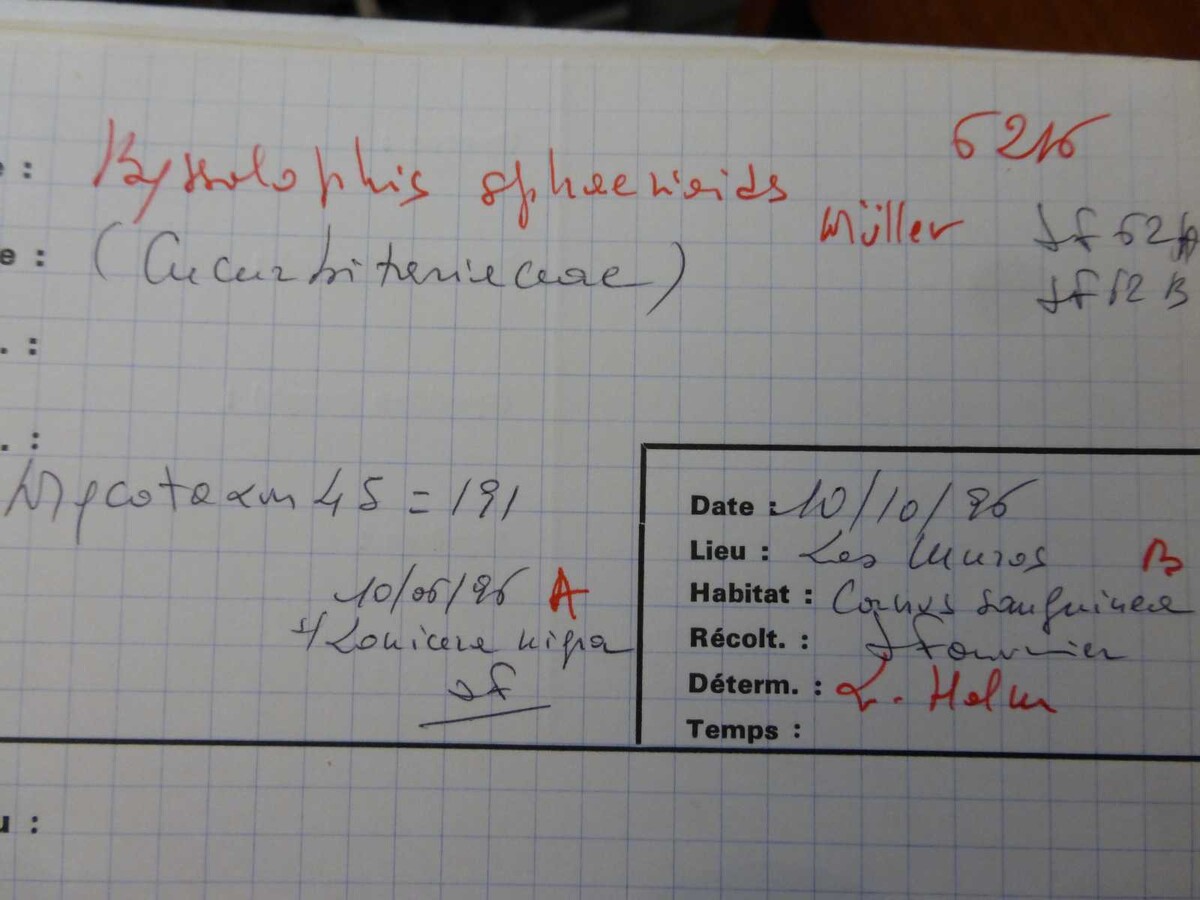 6216
e : Byssolophis sphaerioids
Müller JF 62 A
e : (Cucurbitariaceae) JF 62 B
. :
. :
Mycotaxon 45 = 191
10/06/96 A
s/ Lonicera nigra
JF
Date : 10/10/96
Lieu : Les Muros B
Habitat : Cornus sanguinea
Récolt. : J Fournier
Déterm. : L. Holm
Temps :
u :